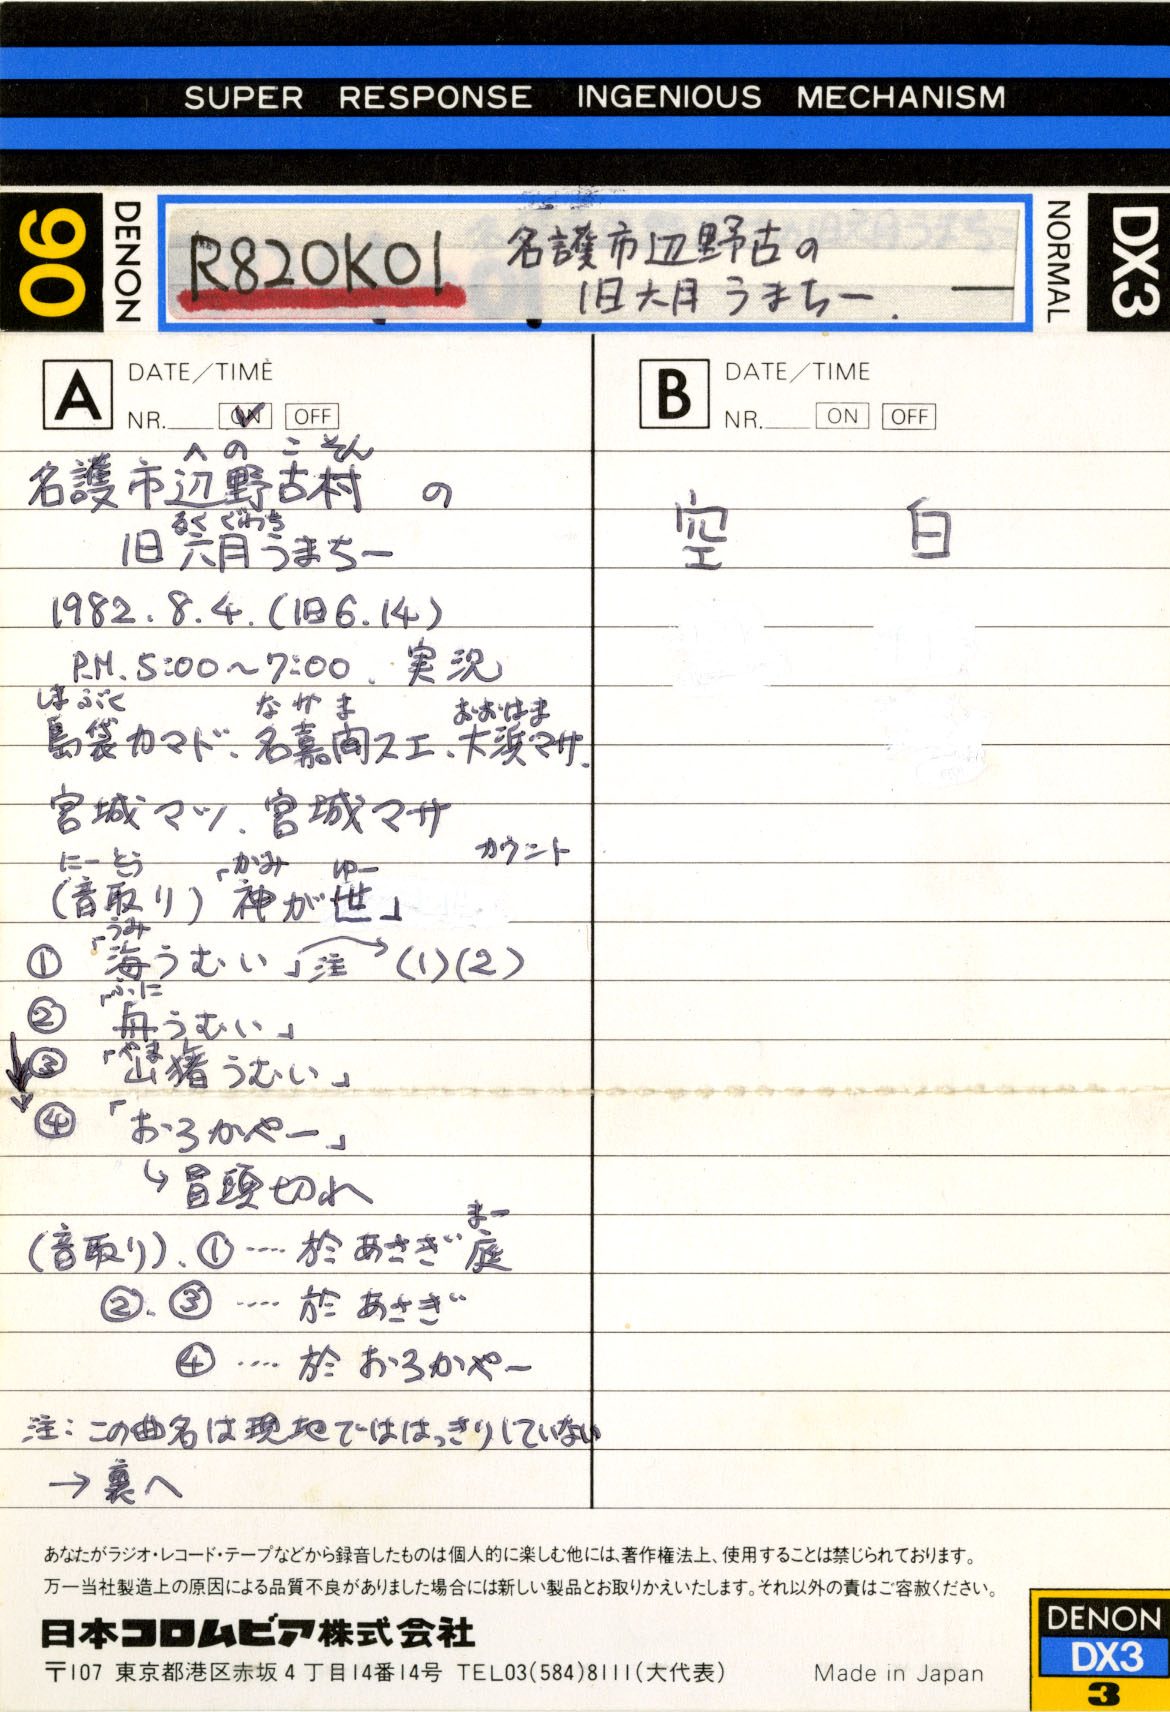 SUPER RESPONSE INGENIOUS MECHANISM
90
DENON
R820K01
名護市辺野古の
旧六月うまちー
NORMAL
DX3
A
DATE/TIME
NR. ON OFF
B
DATE/TIME
NR. ON OFF
へのこそん
名護市辺野古村の
るくぐわち
旧六月うまちー
空白
1982.8.4.(旧6.14)
P.M.5:00~7:00. 実況
しまぶく なかま おおはま
島袋カマド、名嘉間スエ、大浜マサ、
宮城マツ、宮城マサ
カウント
にーとぅ かみ ゆー
(音取り)「神が世」
うみ
① 「海うむい」注 (1)(2)
ふに
② 「舟うむい」
やま
③ 「山猪うむい」
④ 「おろかやー」
↳冒頭切れ
まー
(音取り)、① ‥‥ 於あさぎ庭
②、③ ‥‥ 於あさぎ
④ ‥‥ 於おろかやー
注:この曲名は現地でははっきりしていない
→裏へ
あなたがラジオ・レコード・テープなどから録音したものは個人的に楽しむ他には、著作権法上、使用することは禁じられております。
万一当社製造上の原因による品質不良がありました場合には新しい製品とお取りかえいたします。それ以外の責はご容赦ください。
日本コロムビア株式会社
〒107 東京都港区赤坂4丁目14番14号 TEL03(584)8111(大代表)
Made in Japan
DENON
DX3
3